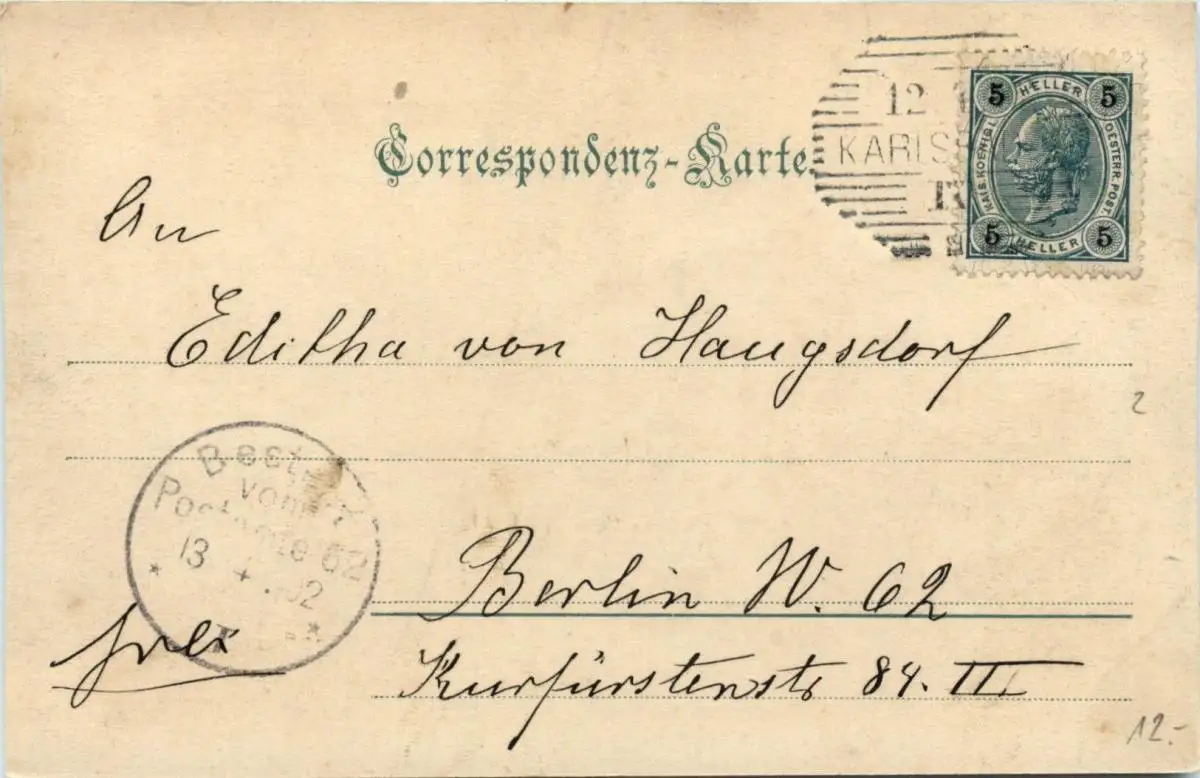 Correspondenz-Karte.
12
KARLS
IX
5 HELLER 5
KAIS. KOENIGL. OESTERR. POST.
5 HELLER 5
An
Editha von Haugsdorf
2
Best.
vom
Postamte 62
13 4 02
Berlin W. 62
Kurfürstenstr 84. III
12.-